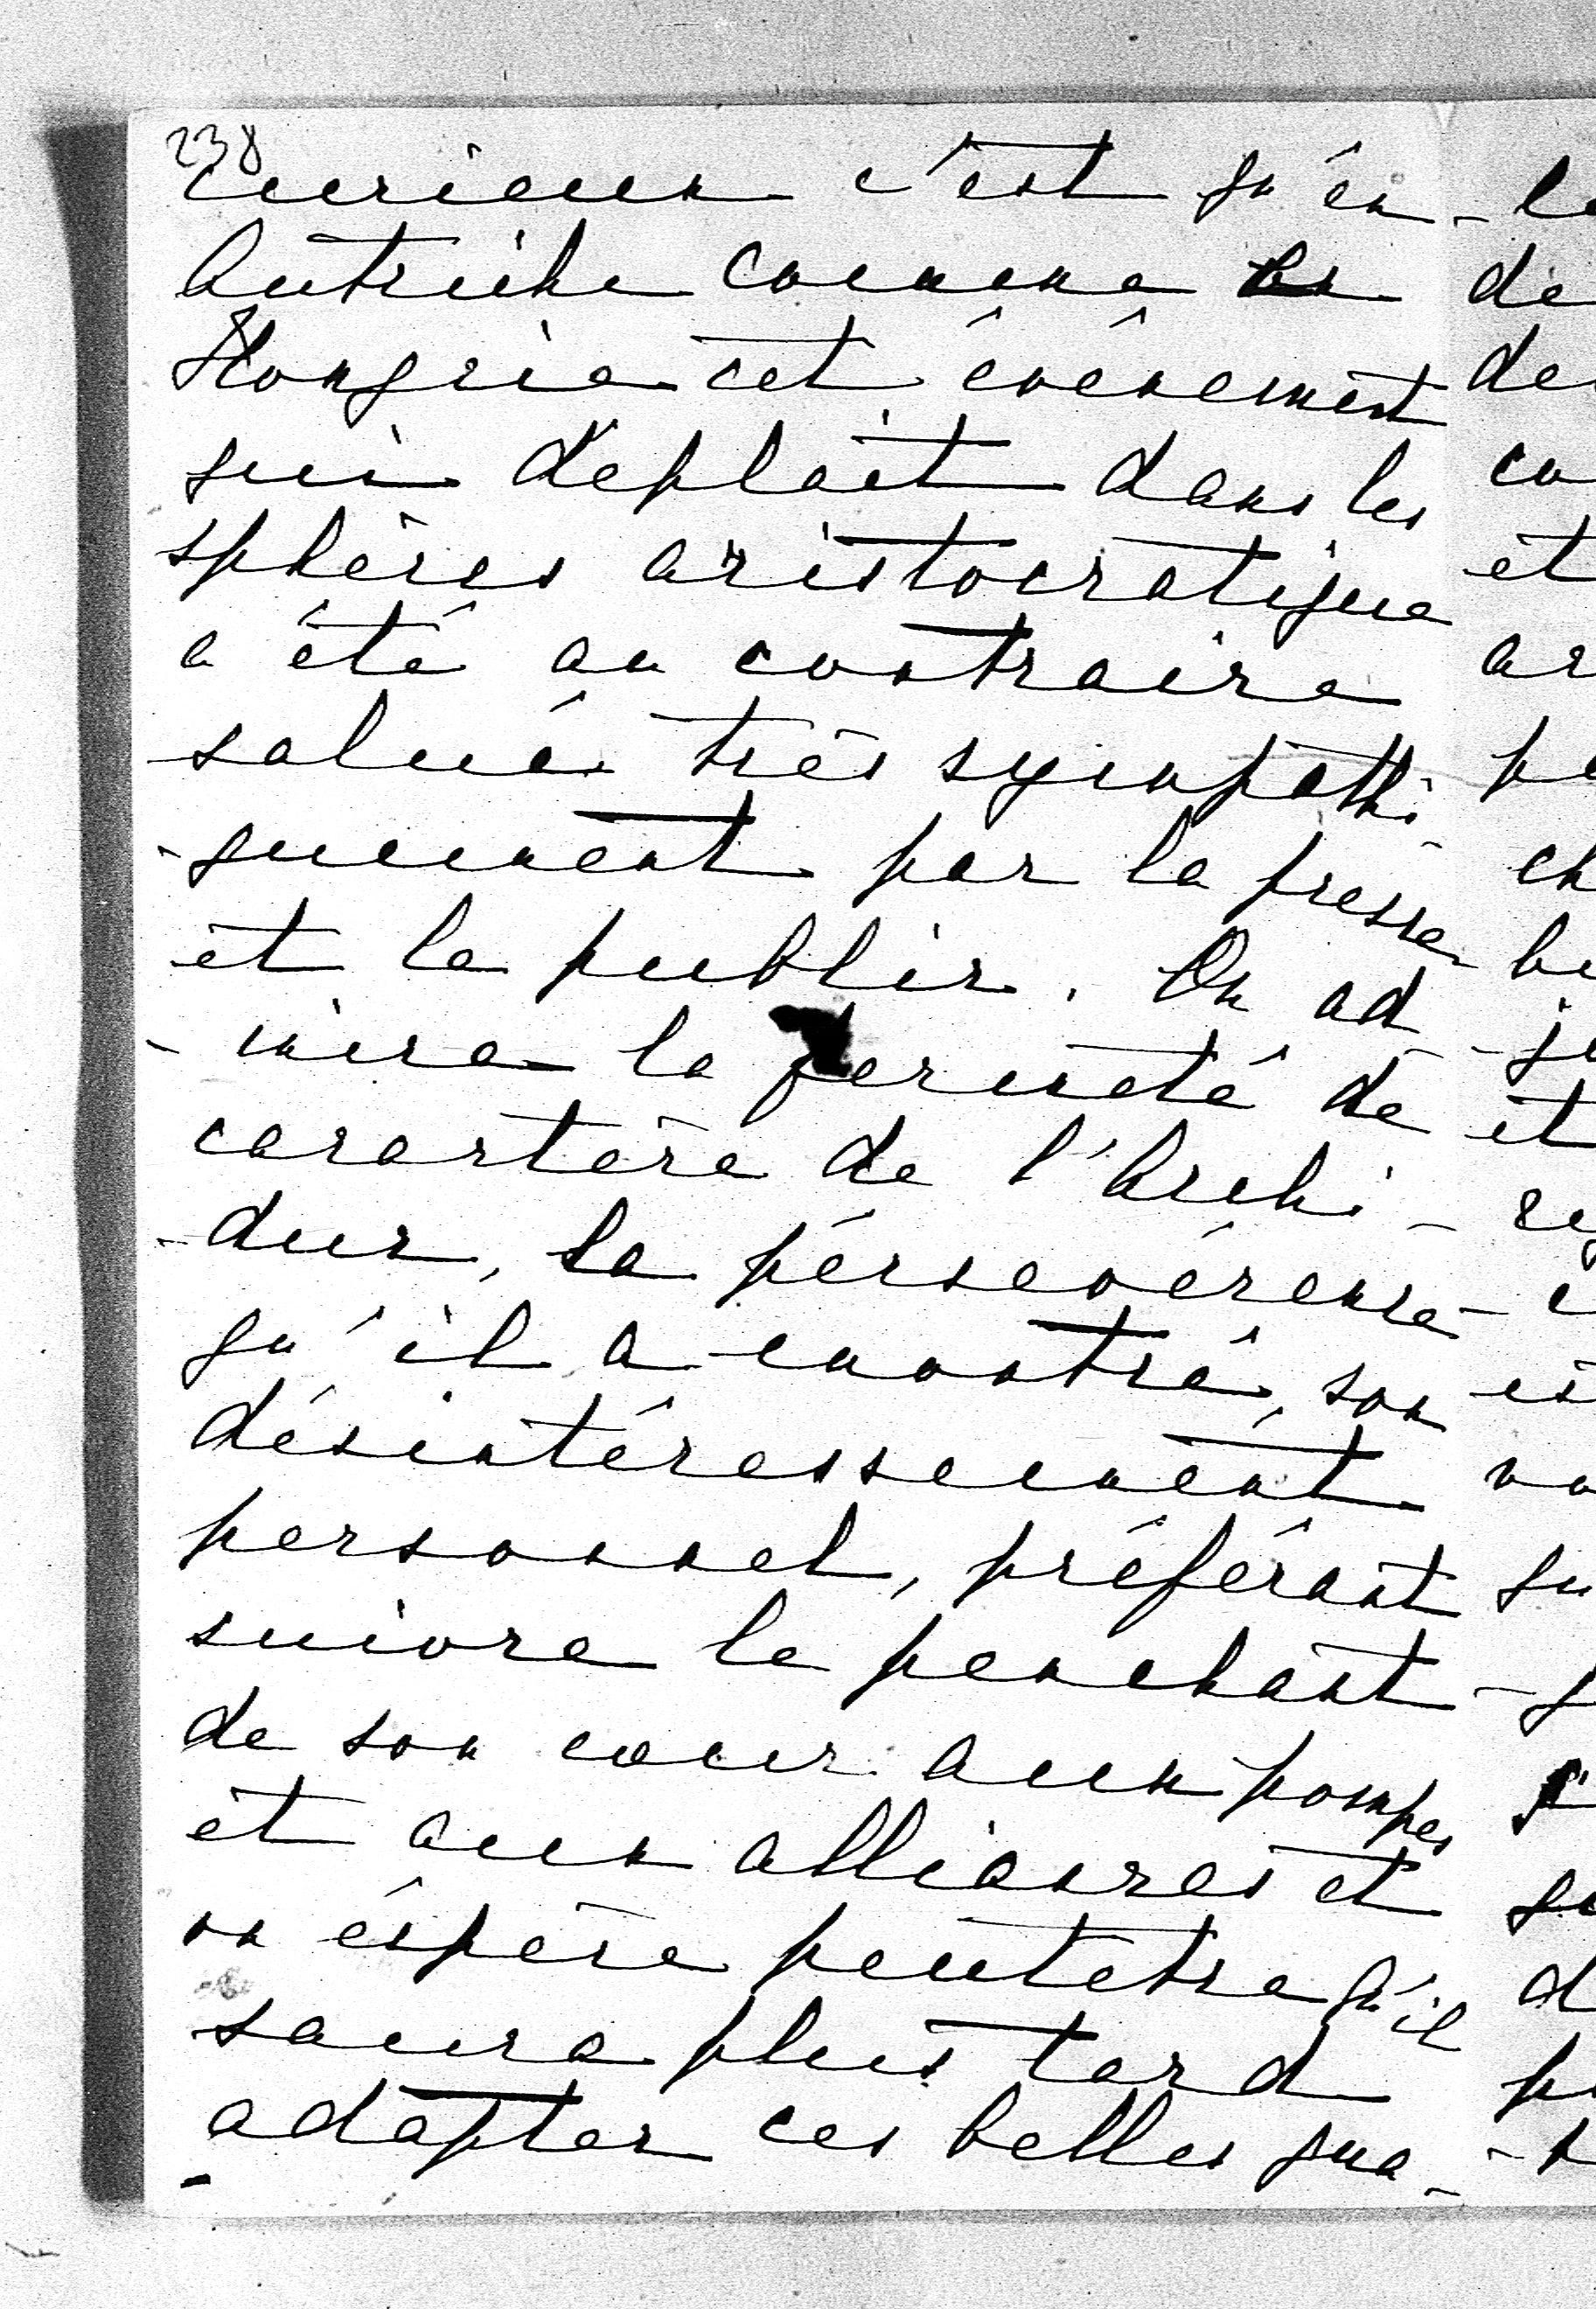 238
curieux c'est qu'en
Autriche comme en
Hongrie cet événement
qui déplait dans les
sphères aristocratique
a été au contraire
salué très sympathi-
-quement par la presse
et le public. On ad-
-mire la fermeté de
caractère de l'Archi-
-duc, la pérsevérence
qu'il a montré, son
désintéressement
personnel, préférant
suivre le penchant
de son cœur aux pompes
et aux alliances et
on éspère peutetre qu'il
saura plus tard
adapter ces belles qua-